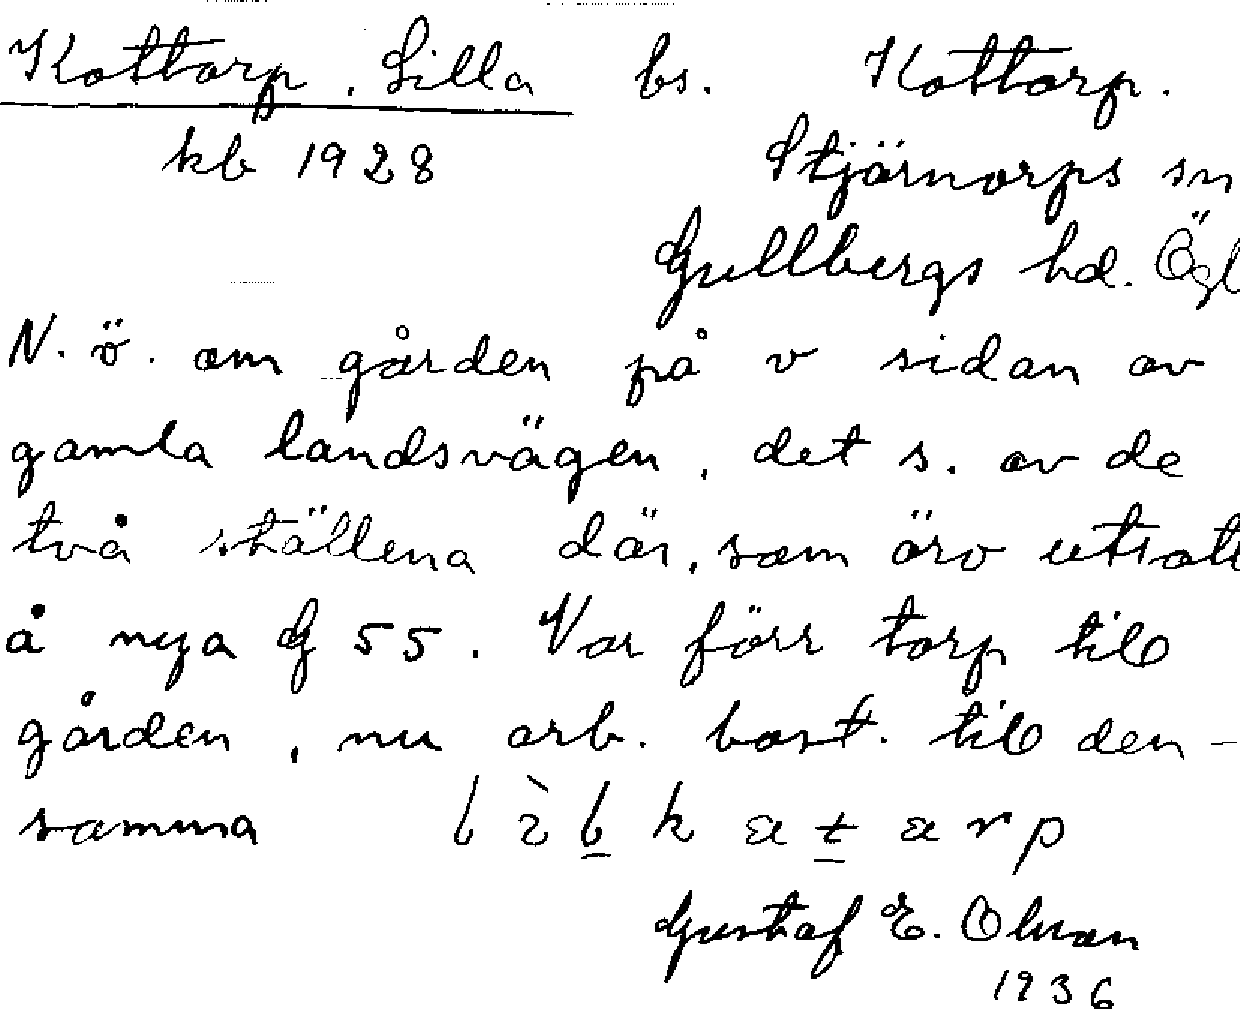 Kottorp, Lilla bs. Kottorp.
kb 1928 Stjärnorps sn
Gullbergs hd. Ögl
N. ö. om gården på v sidan av
gamla landsvägen, det s. av de
två ställena där, som äro utsatt
å nya G 55. Var förr torp till
gården, nu arb. bost. till den-
samma
Gustaf E. Olsson
1936